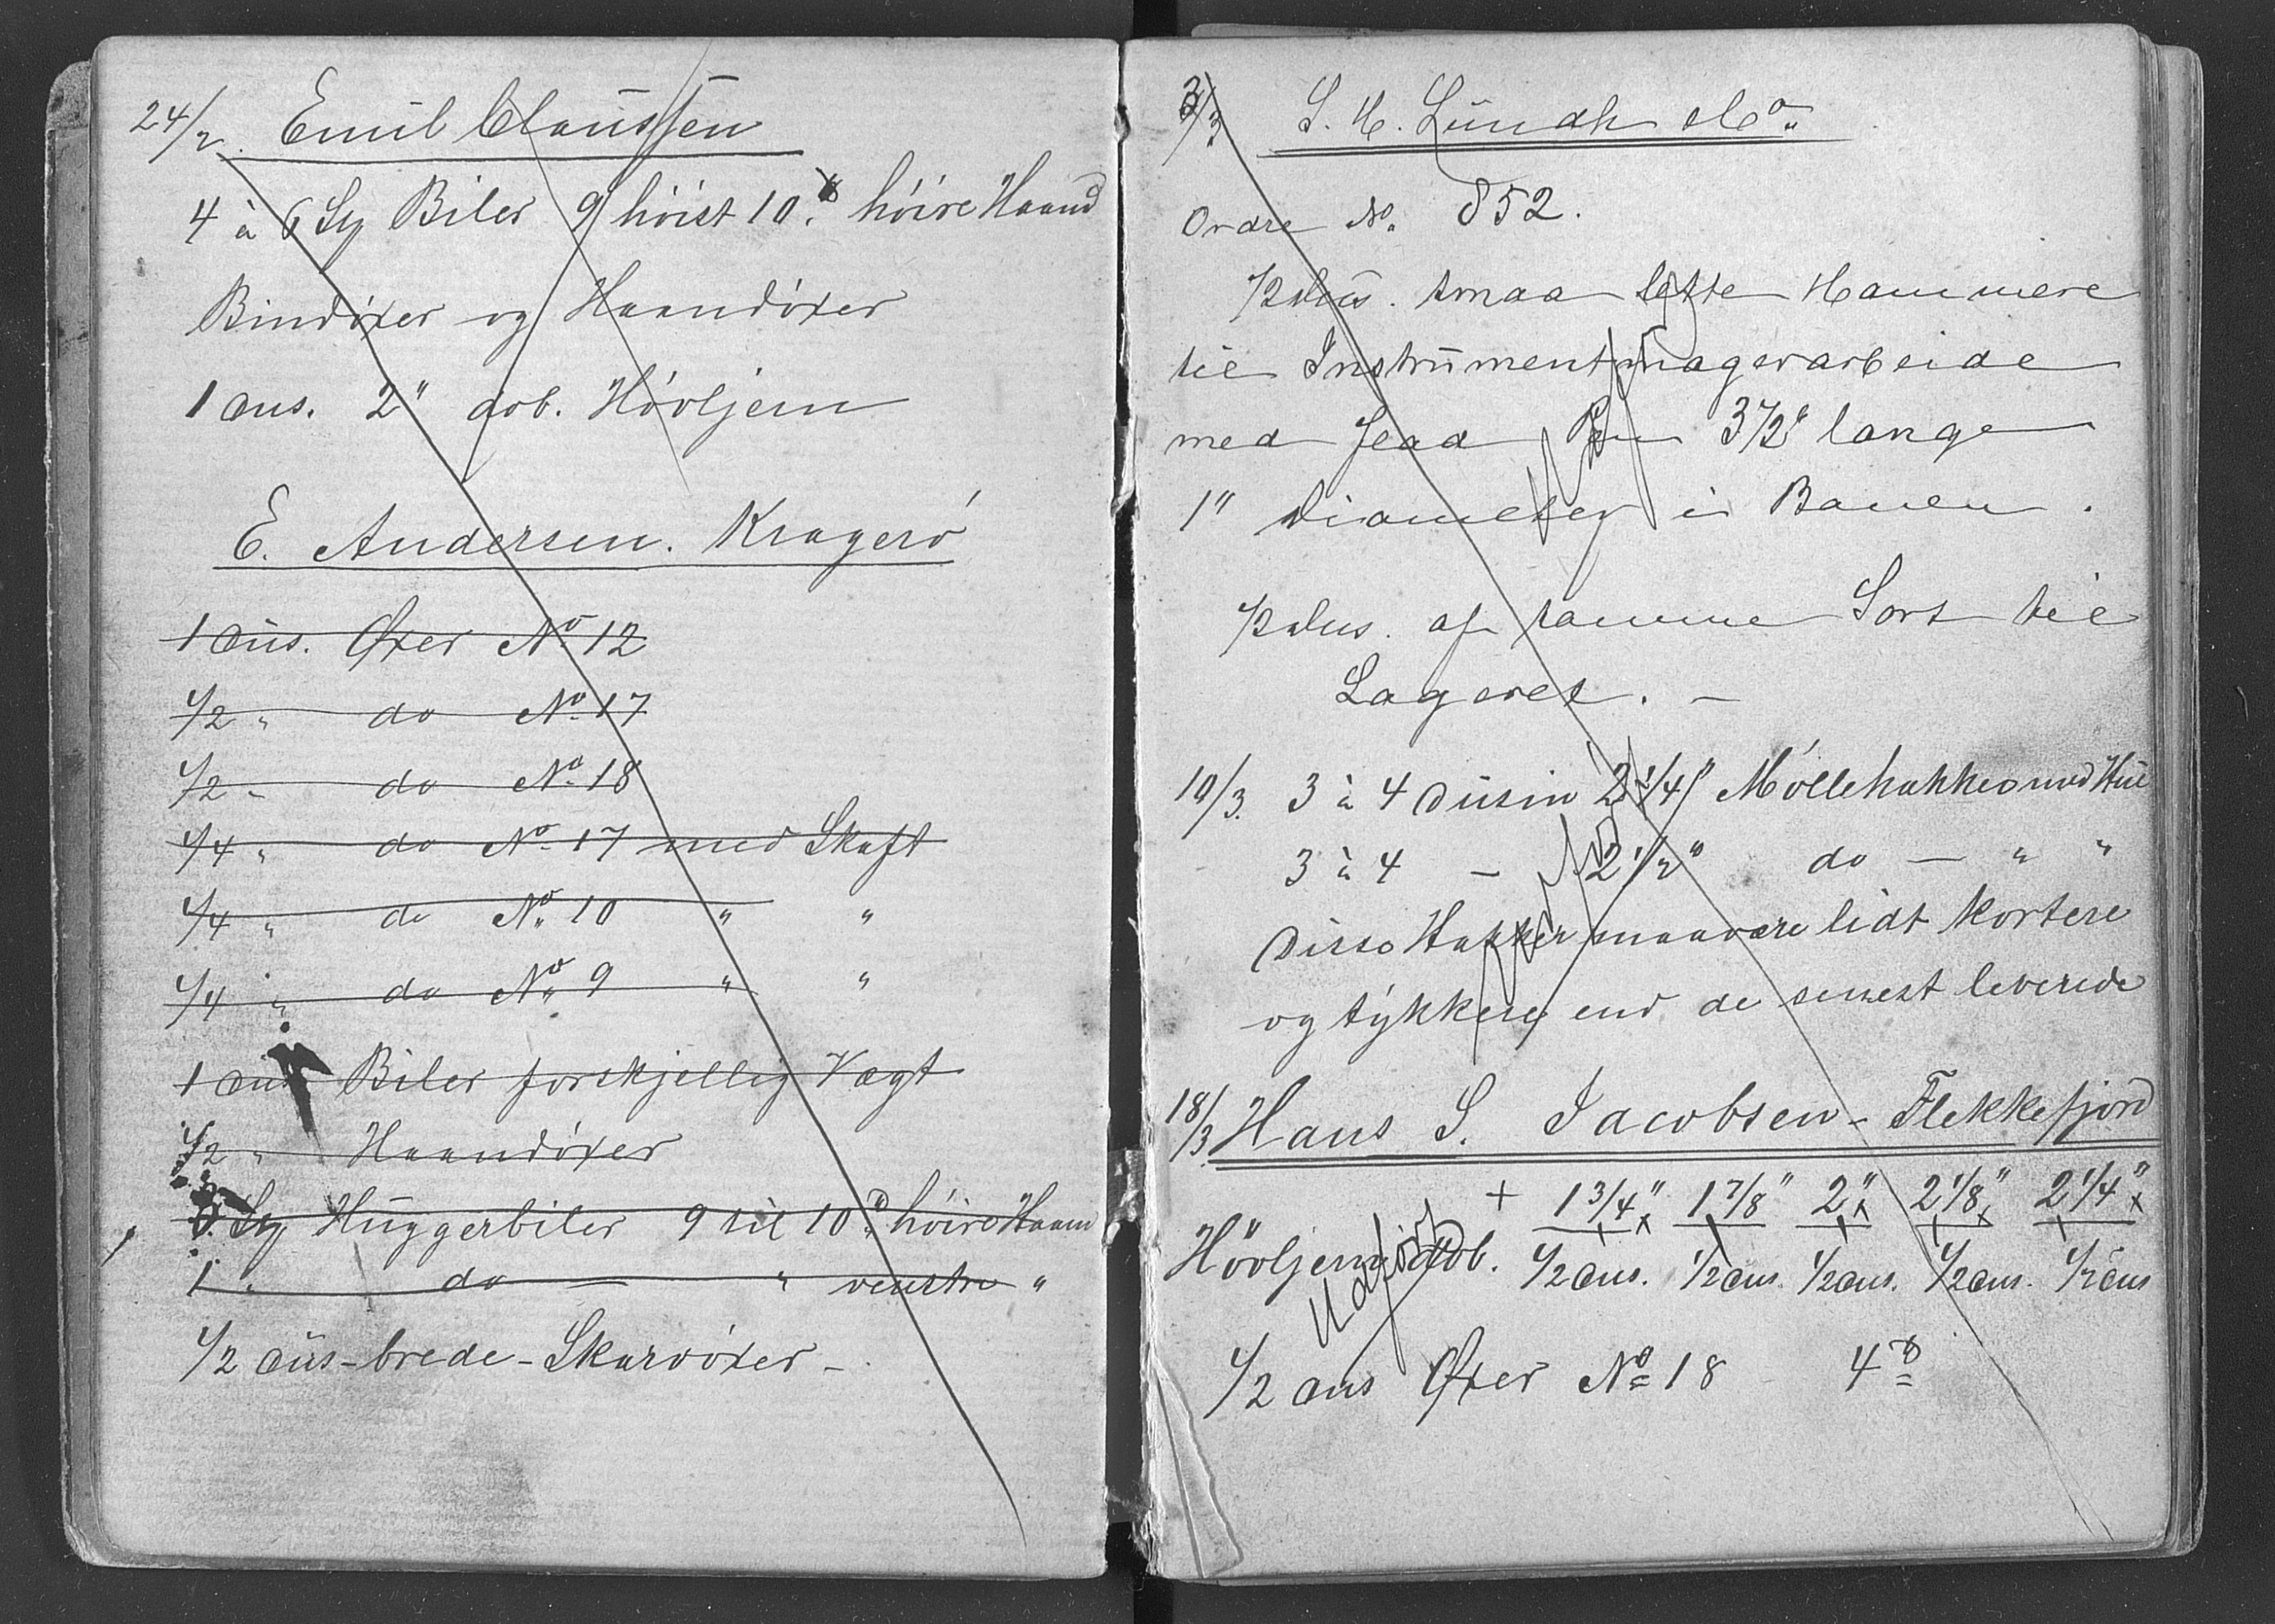 24/2. Emil Claussen
4 à 6 St Biler 9 höist 10 ℔ höire Haand
Bindöxer og Haandöxer
1 Dus. 2" dob. Hövljern
E. Andersen. Kragerö
1 Dus. Øxer No 12
1/2 " do No 17
1/2 " do No 18
1/4 " do No 17 med Skaft
1/4 " do No 10 " "
1/4 " do No 9 " "
1 Dus Biler forskjellig Vægt
1/2 " Haandöxer
St Huggerbiler 9 til 10 ℔ höire Haand
1 " do " venstre "
1/2 Dus brede Skarvöxer
3/3 S. H. Lundh & Co.
Ordre No. 852.
1/2 Dus. smaa lette Hammere
til Instrumentmagerarbeide
med flad Pen 3 1/2" lange
1" Diameter i Banen.
1/2 Dus. af samme Sort til
Lageret. —
10/3. 3 à 4 Dusin 2 1/4" Möllehakker med Hul
3 à 4 — 2 1/2" do — " "
Disse Hakker maa være lidt kortere
og tykkere end de senest leverede
18/3. Hans S. Jacobsen - Flekkefjord
+ 1 3/4" 1 7/8" 2" 2 1/8" 2 1/4"
Hövljern dob. 1/2 Dus. 1/2 Dus. 1/2 Dus. 1/2 Dus. 1/2 Dus
Udført
1/2 Dus Øxer No 18 4 ℔